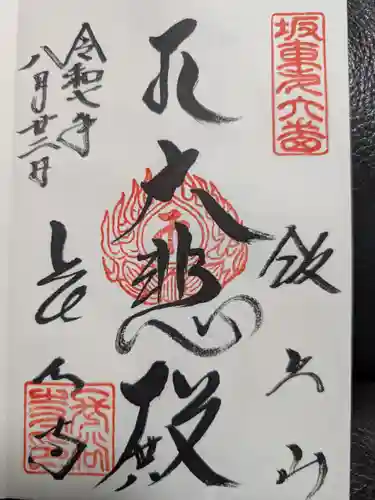 坂東第六番
飯上山
大悲殿
長谷寺
令和七年
八月廿二日